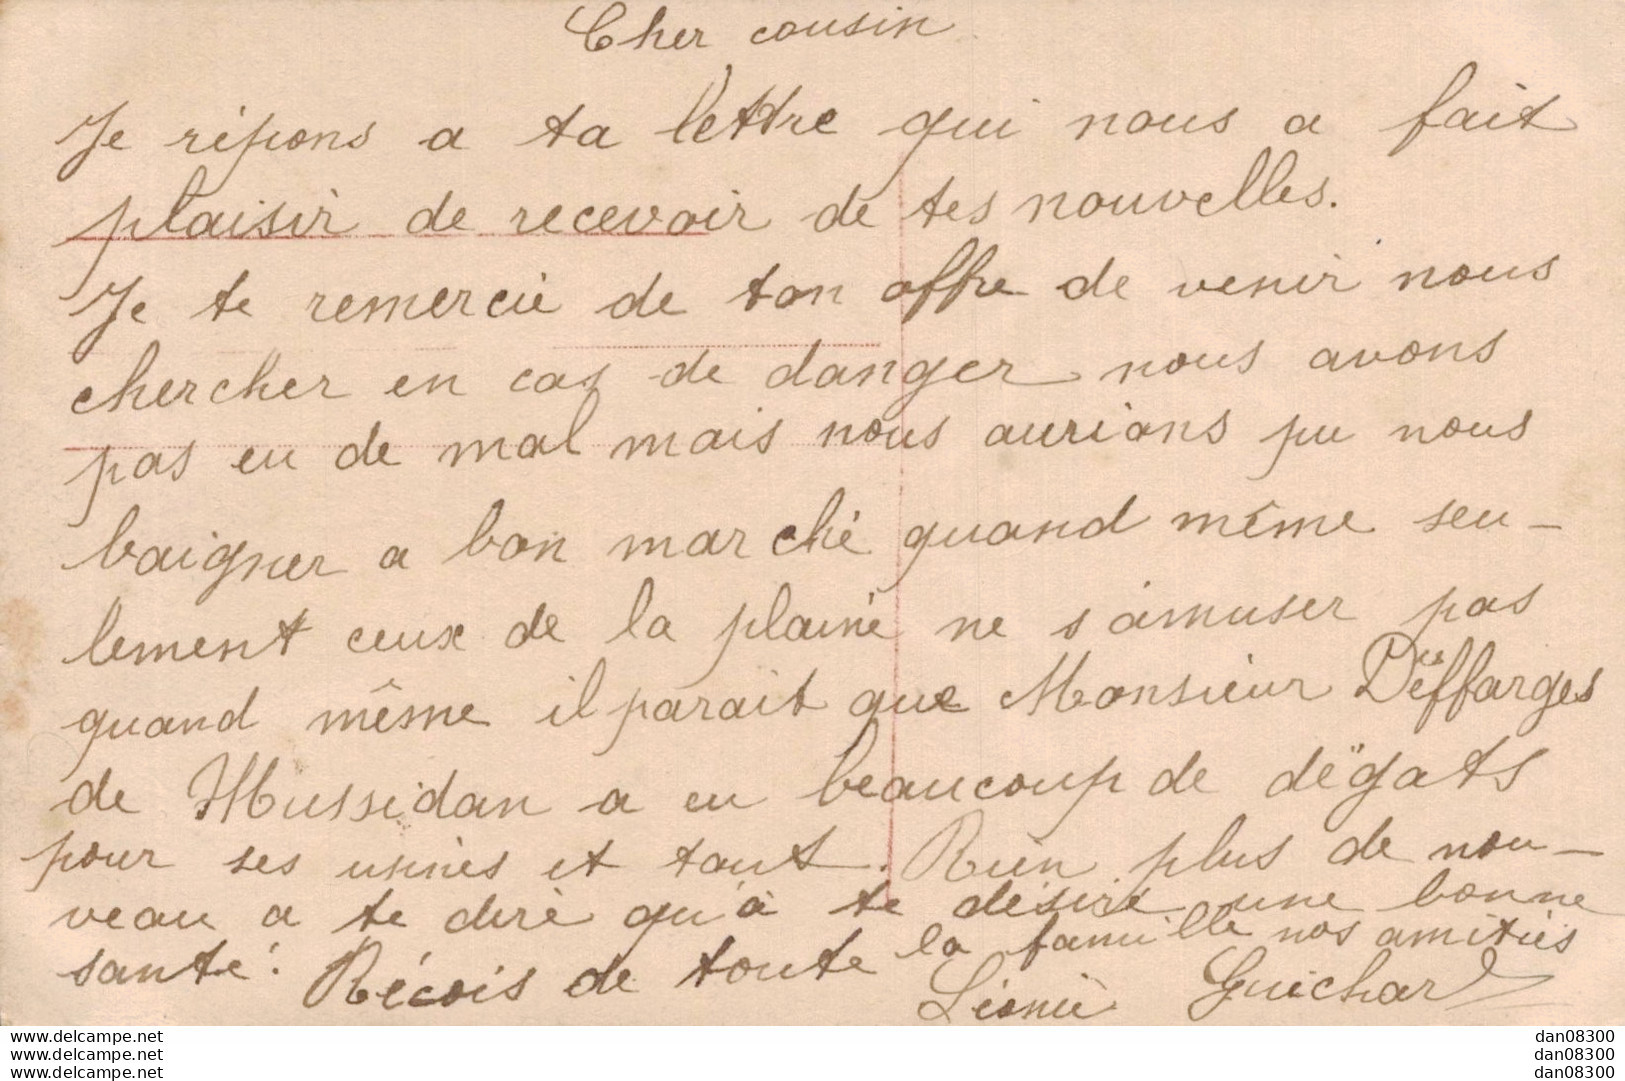 Cher cousin
Je répons a ta lettre qui nous a fait
plaisir de recevoir de tes nouvelles.
Je te remercie de ton offre de venir nous
chercher en cas de danger nous avons
pas eu de mal mais nous aurions pu nous
baigner a bon marché quand même seu-
lement ceux de la plaine ne s'amuser pas
quand même il parait que Monsieur Deffarges
de Mussidan a eu beaucoup de dëgats
pour ses usines et tout. Rien plus de nou-
veau a te dire qu'à te désiré une bonne
santé. Récois de toute la famille nos amitiés
Léonie Guichard
www.delcampe.net
www.delcampe.net
www.delcampe.net
dan08300
dan08300
dan08300